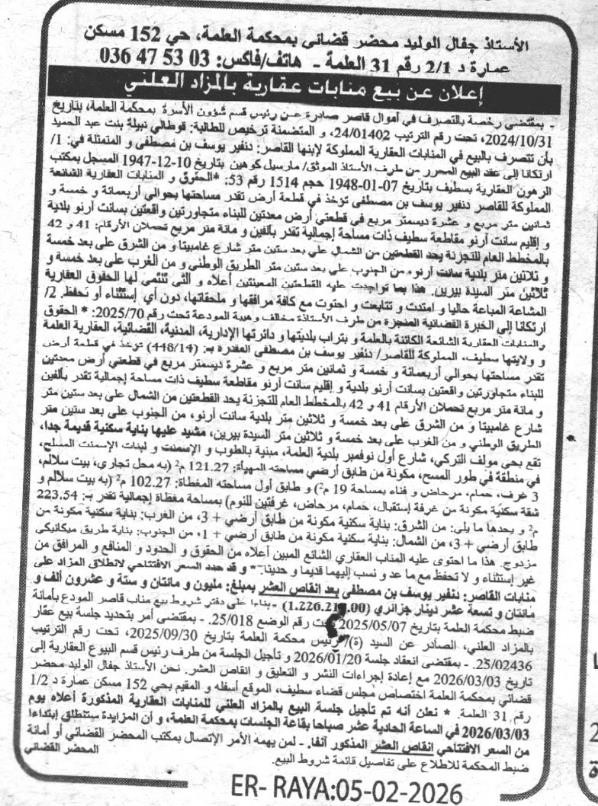 الأستاذ جفال الوليد محضر قضائي بمحكمة العلمة، حي 152 مسكن
عمارة د 2/1 رقم 31 العلمة - هاتف/فاكس: 03 53 47 036
إعلان عن بيع منابات عقارية بالمزاد العلني
- بمقتضى رخصة بالتصرف في أموال قاصر صادرة عن رئيس قسم شؤون الأسرة بمحكمة العلمة، بتاريخ
2024/10/31، تحت رقم الترتيب 24/01402، و المتضمنة ترخيص للطالبة: قوطالي نبيلة بنت عبد الحميد
بأن تتصرف بالبيع في المنابات العقارية المملوكة لإبنها القاصر: دنفير يوسف بن مصطفى و المتمثلة في: 1/
ارتكانا إلى عقد البيع المحرر من طرف الأستاذ الموثق/ مارسيل كوهين بتاريخ 10-12-1947 المسجل بمكتب
الرهون العقارية بسطيف بتاريخ 07-01-1948 حجم 1514 رقم 53: *الحقوق و المنابات العقارية الشائعة
المملوكة للقاصر دنفير يوسف بن مصطفى تؤخذ في قطعة أرض تقدر مساحتها بحوالي أربعمائة و خمسة و
ثمانين متر مربع و عشرة ديسمتر مربع في قطعتي أرض معدتين للبناء متجاورتين واقعتين بسانت أرنو بلدية
و إقليم سانت أرنو مقاطعة سطيف ذات مساحة إجمالية تقدر بألفين و مائة متر مربع تحملان الأرقام: 41 و 42
بالمخطط العام للتجزئة يحد القطعتين من الشمال على بعد ستين متر شارع غامبيتا و من الشرق على بعد خمسة
و ثلاثين متر بلدية سانت أرنو، من الجنوب على بعد ستين متر الطريق الوطني و من الغرب على بعد خمسة و
ثلاثين متر السيدة بيرين. هذا بما تواجدت عليه القطعتين المعينتين أعلاه و التي تنتمي لها الحقوق العقارية
المشاعة المباعة حاليا و امتدت و تتابعت و احتوت مع كافة مرافقها و ملحقاتها، دون أي إستثناء أو تحفظ. 2/
ارتكانا إلى الخبرة القضائية المنجزة من طرف الأستاذة مخالف وهيبة المودعة تحت رقم: 2025/70: * الحقوق
والمنابات العقارية الشائعة الكائنة بالعلمة و بتراب بلديتها و دائرتها الإدارية، المدنية، القضائية، العقارية العلمة
و ولايتها سطيف، المملوكة للقاصر/ دنفير يوسف بن مصطفى المقدرة بـ: (448/14) تؤخذ في قطعة أرض
تقدر مساحتها بحوالي أربعمائة و خمسة و ثمانين متر مربع و عشرة ديسمتر مربع في قطعتي أرض معدتين
للبناء متجاورتين واقعتين بسانت أرنو بلدية و إقليم سانت أرنو مقاطعة سطيف ذات مساحة إجمالية تقدر بألفين
و مائة متر مربع تحملان الأرقام 41 و 42 بالمخطط العام للتجزئة يحد القطعتين من الشمال على بعد ستين متر
شارع غامبيتا و من الشرق على بعد خمسة و ثلاثين متر بلدية سانت أرنو، من الجنوب على بعد ستين متر
الطريق الوطني و من الغرب على بعد خمسة و ثلاثين متر السيدة بيرين، مشيد عليها بناية سكنية قديمة جدا،
تقع بحي مولف التركي، شارع أول نوفمبر بلدية العلمة، مبنية بالطوب و الإسمنت و لبنات الإسمنت المسلح،
في منطقة في طور المسح، مكونة من طابق أرضي مساحته المهيأة: 121.27 م² (به محل تجاري، بيت سلالم،
3 غرف، حمام، مرحاض و فناء بمساحة 19 م²) و طابق أول مساحته المغطاة: 102.27 م² (به بيت سلالم و
شقة سكنية مكونة من غرفة إستقبال، حمام، مرحاض، غرفتين للنوم) بمساحة مغطاة إجمالية تقدر بـ: 223.54
م² و يحدها ما يلي: من الشرق: بناية سكنية مكونة من طابق أرضي + 3، من الغرب: بناية سكنية مكونة من
طابق أرضي + 3، من الشمال: بناية سكنية مكونة من طابق أرضي + 1، من الجنوب: بناية طريق ميكانيكي
مزدوج. هذا ما احتوى عليه المناب العقاري الشائع المبين أعلاه من الحقوق و الحدود و المنافع و المرافق من
غير إستثناء و لا تحفظ مع ما عد و نسب إليهما قديما و حديثا.* و قد حدد السعر الافتتاحي لانطلاق المزاد على
منابات القاصر: دنفير يوسف بن مصطفى بعد انقاص العشر بمبلغ: مليون و مائتان و ستة و عشرون ألف و
مائتان و تسعة عشر دينار جزائري (1.226.219.00) - بناءا على دفتر شروط بيع مناب قاصر المودع بأمانة
ضبط محكمة العلمة بتاريخ 2025/05/07 تحت رقم الوضع 25/018. - بمقتضى أمر بتحديد جلسة بيع عقار
بالمزاد العلني، الصادر عن السيد (ة)/ رئيس محكمة العلمة بتاريخ 2025/09/30، تحت رقم الترتيب
25/02436. - بمقتضى انعقاد جلسة 2026/01/20 و تأجيل الجلسة من طرف رئيس قسم البيوع العقارية إلى
تاريخ 2026/03/03 مع إعادة إجراءات النشر و التعليق و انقاص العشر. نحن الأستاذ جفال الوليد محضر
قضائي بمحكمة العلمة اختصاص مجلس قضاء سطيف، الموقع أسفله و المقيم بحي 152 مسكن عمارة د 2/1
رقم. 31 العلمة. * نعلن أنه تم تأجيل جلسة البيع بالمزاد العلني للمنابات العقارية المذكورة أعلاه يوم
2026/03/03 في الساعة الحادية عشر صباحا بقاعة الجلسات بمحكمة العلمة، و أن المزايدة ستنطلق إبتداءا
من السعر الافتتاحي إنقاص العشر المذكور آنفا. - لمن يهمه الأمر الإتصال بمكتب المحضر القضائي أو أمانة
ضبط المحكمة للاطلاع على تفاصيل قائمة شروط البيع.
المحضر القضائي
ER- RAYA:05-02-2026